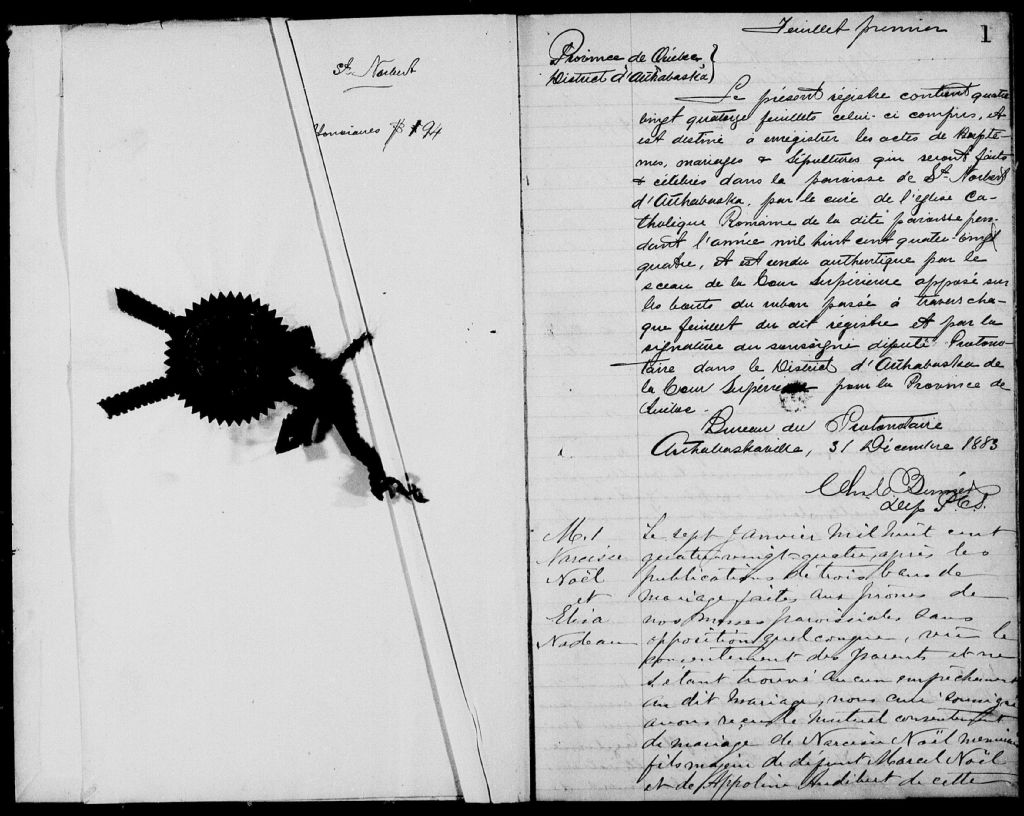 St. Norbert
Honoraires $ 1.94
Feuillet premier
1
Province de Québec
District d'Arthabaska
Le présent régistre contient quatre
vingt quatorze feuillets celui-ci compris, et
est destiné à enregistrer les actes de Baptê-
mes, mariages & Sépultures qui seront faits
& célébrés dans la paroisse de St. Norbert
d'Arthabaska, par le curé de l'église Ca-
tholique Romaine de la dite paroisse pen-
dant l'année mil huit cent quatre-vingt
quatre, et est rendu authentique par le
sceau de la Cour Supérieure apposé sur
les bouts du ruban passé à travers cha-
que feuillet du dit régistre et par la
signature du soussigné député Protono-
taire dans le District d'Arthabaska de
la Cour Supérieure pour la Province de
Québec.
Bureau du Protonotaire
Arthabaskaville, 31 Décembre 1883
Dep P.C.S.
M. 1
Narcisse
Noël
et
Elisa
Nadeau
Le sept Janvier mil huit cent
quatre-vingt-quatre, après les
publications de trois bans de
mariage faites aux prônes de
nos Messes paroissiales sans
opposition quelconque, vu le
consentement des parents et ne
s'étant trouvé aucun empêchement
au dit mariage, nous curé soussigné
avons reçu le mutuel consentement
de mariage de Narcisse Noël menuisier
fils majeur de défunt Marcel Noël
et de Appoline Audibert de cette